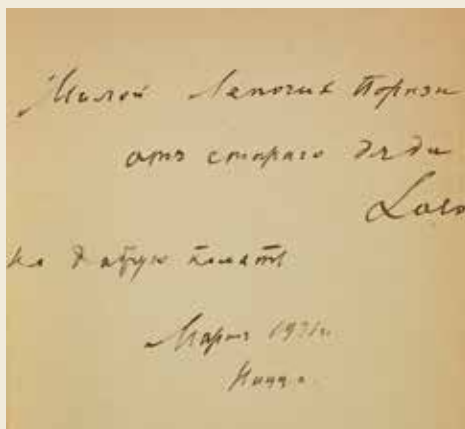 Милой Леночке
отъ стараго дяди
Lolo
на добрую память
Мартъ 1931г.
Ницца.